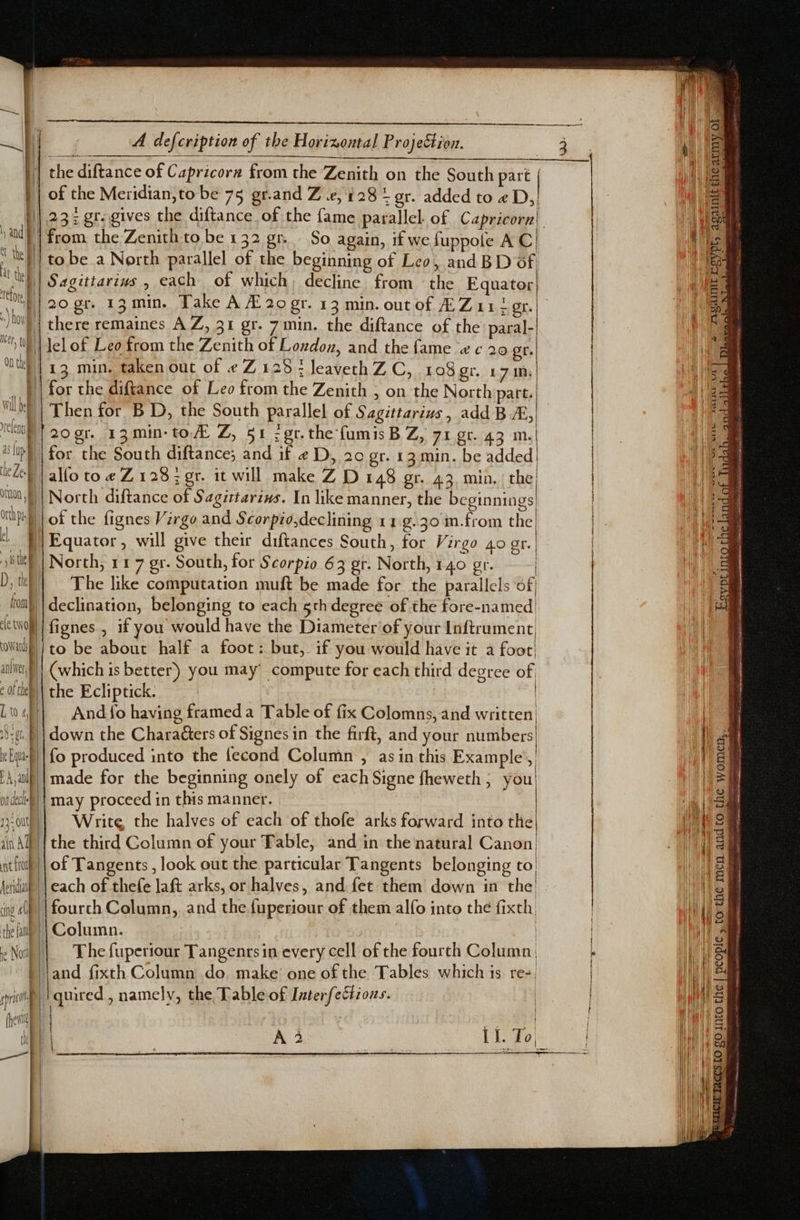 A deſcription of the Horizontal Projection. 3
the diſtance of Capricorn from the Zenith on the South part
of the Meridian, to be 75 gr. and Z æ, 128½ gr. added to æ D,
23½ gr. gives the diſtance of the ſame parallel of Capricorn
from the Zenith to be 132 gr. So again, if we ſuppoſe A C
to be a North parallel of the beginning of Leo, and B D of
Sagittarius, each of which decline from the Equator
20 gr. 13 min. Take A Æ 20 gr. 13 min. out of Æ Z 51½ gr.
there remaines A Z, 31 gr. 7 min. the diſtance of the paral-
lel of Leo from the Zenith of London, and the ſame æ c 20 gr.
13 min. taken out of æ Z 128½ leaveth Z C, 108 gr. 17 m.
for the diſtance of Leo from the Zenith, on the North part.
Then for B D, the South parallel of Sagittarius, add B Æ,
20 gr. 13 min. to Æ Z, 51½ gr. the ſum is B Z, 71 gr. 43 m.
for the South diſtance; and if æ D, 20 gr. 13 min. be added
alſo to æ Z 128½ gr. it will make Z D 148 gr. 43 min. the
North diſtance of Sagittarius. In like manner, the beginnings
of the ſignes Virgo and Scorpio, declining 11 g. 30 m. from the
Equator, will give their diſtances South, for Virgo 40 gr.
North, 117 gr. South, for Scorpio 63 gr. North, 140 gr.
The like computation muſt be made for the parallels of
declination, belonging to each 5th degree of the fore-named
ſignes, if you would have the Diameter of your Inſtrument
to be about half a foot: but, if you would have it a foot
(which is better) you may compute for each third degree of
the Ecliptick.
And ſo having framed a Table of ſix Colomns, and written
down the Characters of Signes in the firſt, and your numbers
ſo produced into the ſecond Column, as in this Example,
made for the beginning onely of each Signe ſheweth, you
may proceed in this manner.
Write the halves of each of thoſe arks forward into the
the third Column of your Table, and in the natural Canon
of Tangents, look out the particular Tangents belonging to
each of theſe laſt arks, or halves, and ſet them down in the
fourth Column, and the ſuperiour of them alſo into the ſixth
Column.
The ſuperiour Tangents in every cell of the fourth Column
and ſixth Column do make one of the Tables which is re-
quired, namely, the Table of Interſections.
A 3 II. To